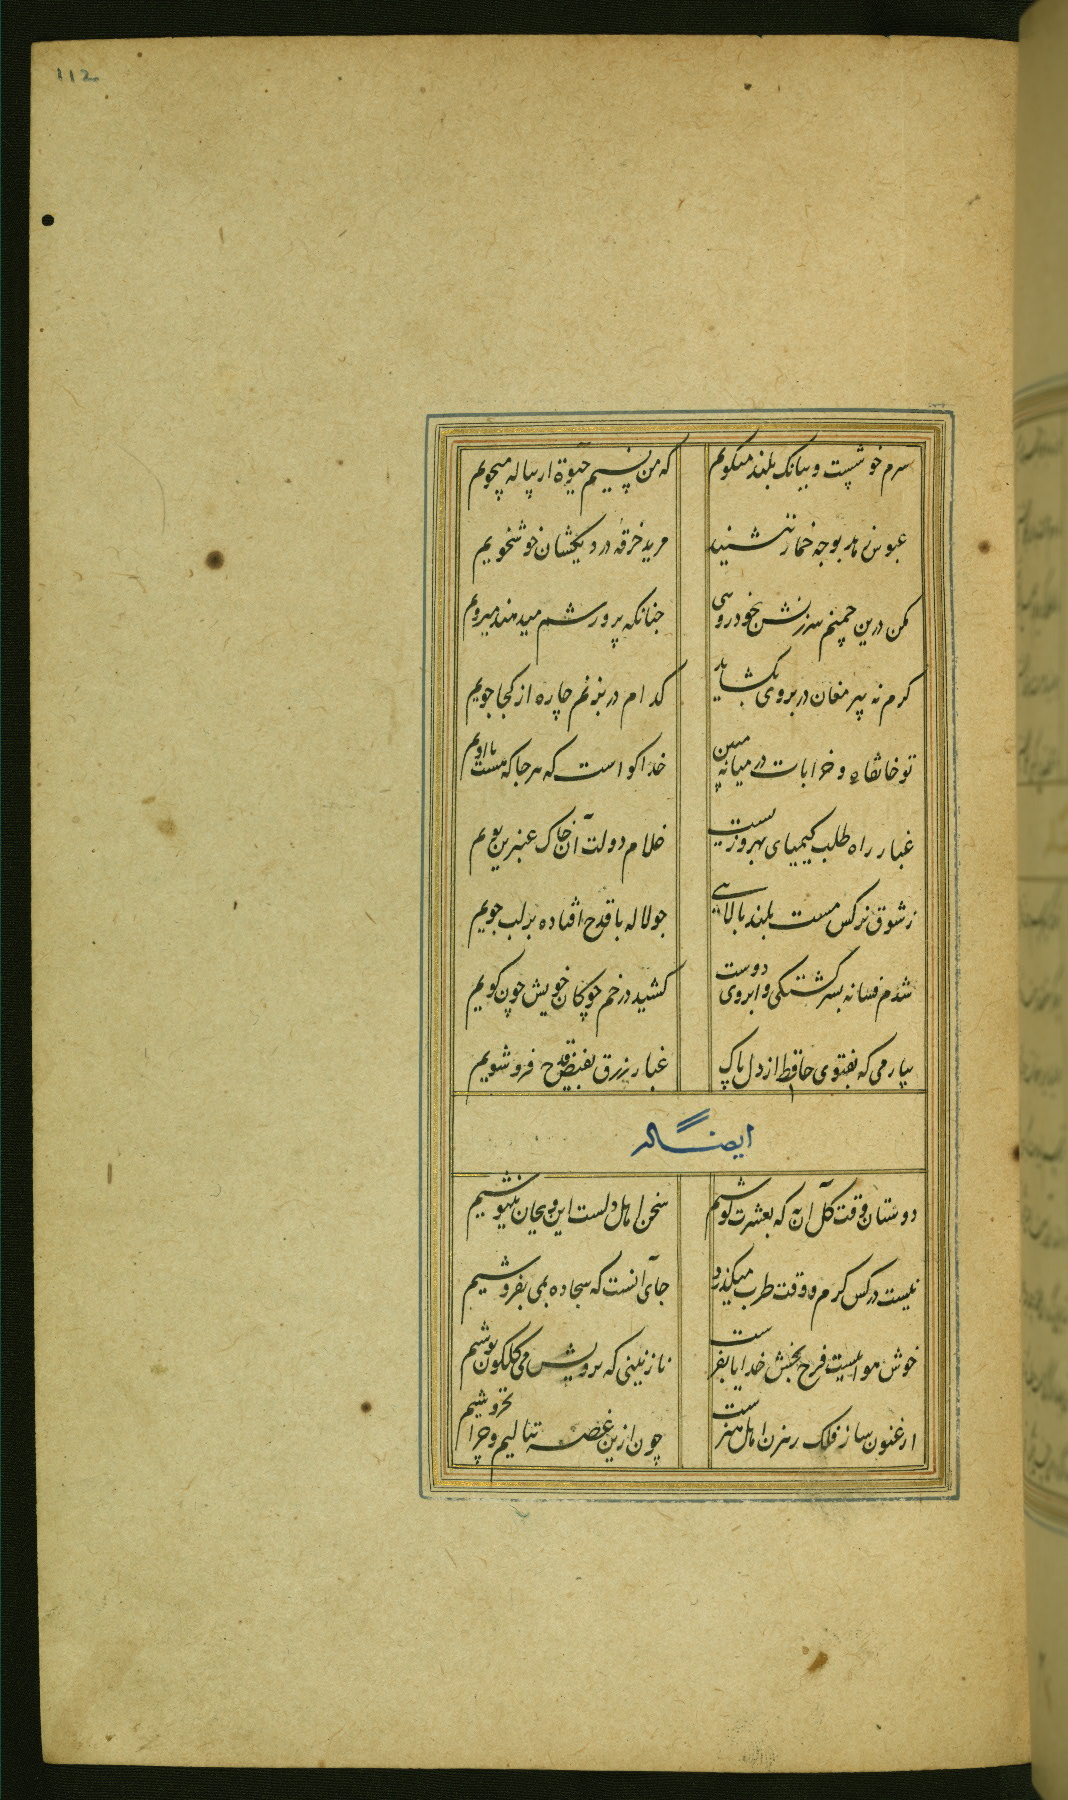 112
سرم خوشست و ببانک بلند میکویم
که من نسیم حیوة از پیاله میجویم
عبوس زهد بوجه خمار ننشیند
مرید خرقه دردیکشان خوشخویم
مکن درین چمنم سرزنش بخودرویی
چنانکه پرورشم میدهند میرویم
کرم نه پیر مغان در بروی بکشاید
کدام در بزنم چاره از کجا جویم
تو خانقاه و خرابات در میانه مبین
خدا کواست که هر جا که هست با اویم
غبار راه طلب کیمیای بهروزیست
غلام دولت آن خاک عنبرین بویم
زشوق نرکس مست بلند بالایی
جو لاله با قدح افتاده بر لب جویم
شدم فسانه بسرکشتکی و ابروی دوست
کشید در خم چوکان خویش چون کویم
بیار می که بفتوی حافظ از دل پاک
غبار زرق بفیض قدح فرو شویم
ایضا له
دوستان وقت کل آن به که بعشرت کوشیم
سخن اهل دلست این و بجان بنیوشیم
نیست در کس کرم و وقت طرب میکذرد
جای آنست که سجاده بمی بفروشیم
خوش هوائیست فرح بخش خدایا بفرست
نازنینی که برویش می کلکون نوشیم
ارغنون ساز فلک رهزن اهل هنرست
چون ازین غصه ننالیم و چرا نخروشیم